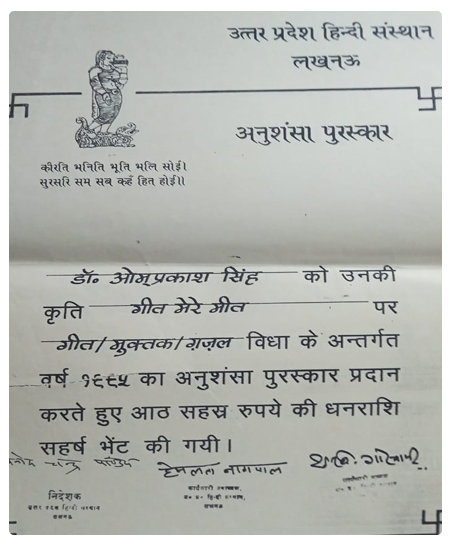 उत्तर प्रदेश हिन्दी संस्थान
लखनऊ
अनुशंसा पुरस्कार
कीरति भनिति भूति भलि सोई।
सुरसरि सम सब कहँ हित होई॥
डॉ॰ ओमप्रकाश सिंह को उनकी
कृति गीत मेरे मीत पर
गीत/मुक्तक/ग़ज़ल विधा के अन्तर्गत
वर्ष १९९५ का अनुशंसा पुरस्कार प्रदान
करते हुए आठ सहस्र रुपये की धनराशि
सहर्ष भेंट की गयी।
चन्द्र पाण्डेय हेमलता नागपाल
निदेशक
उत्तर प्रदेश हिन्दी संस्थान
लखनऊ
कार्यकारी उपाध्यक्ष,
उ॰ प्र॰ हिन्दी संस्थान,
लखनऊ